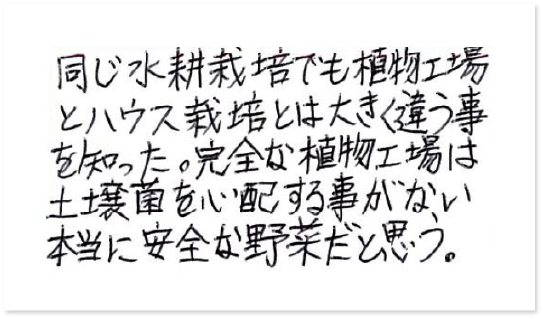 同じ水耕栽培でも植物工場
とハウス栽培とは大きく違う事
を知った。完全な植物工場は
土壌菌を心配する事がない
本当に安全な野菜だと思う。